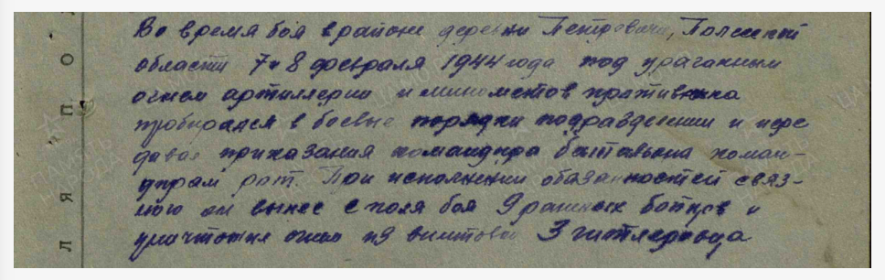 Во время боя в районе деревни Петровичи, Полесской
области 7 и 8 февраля 1944 года под ураганным
огнем артиллерии и минометов противника
пробирался в боевые порядки подразделений и пере
давал приказания командира батальона коман-
дирам рот. При исполнении обязанностей связ-
ного он вынес с поля боя 9 раненых бойцов и
уничтожил огнем из винтовки 3 гитлеровца